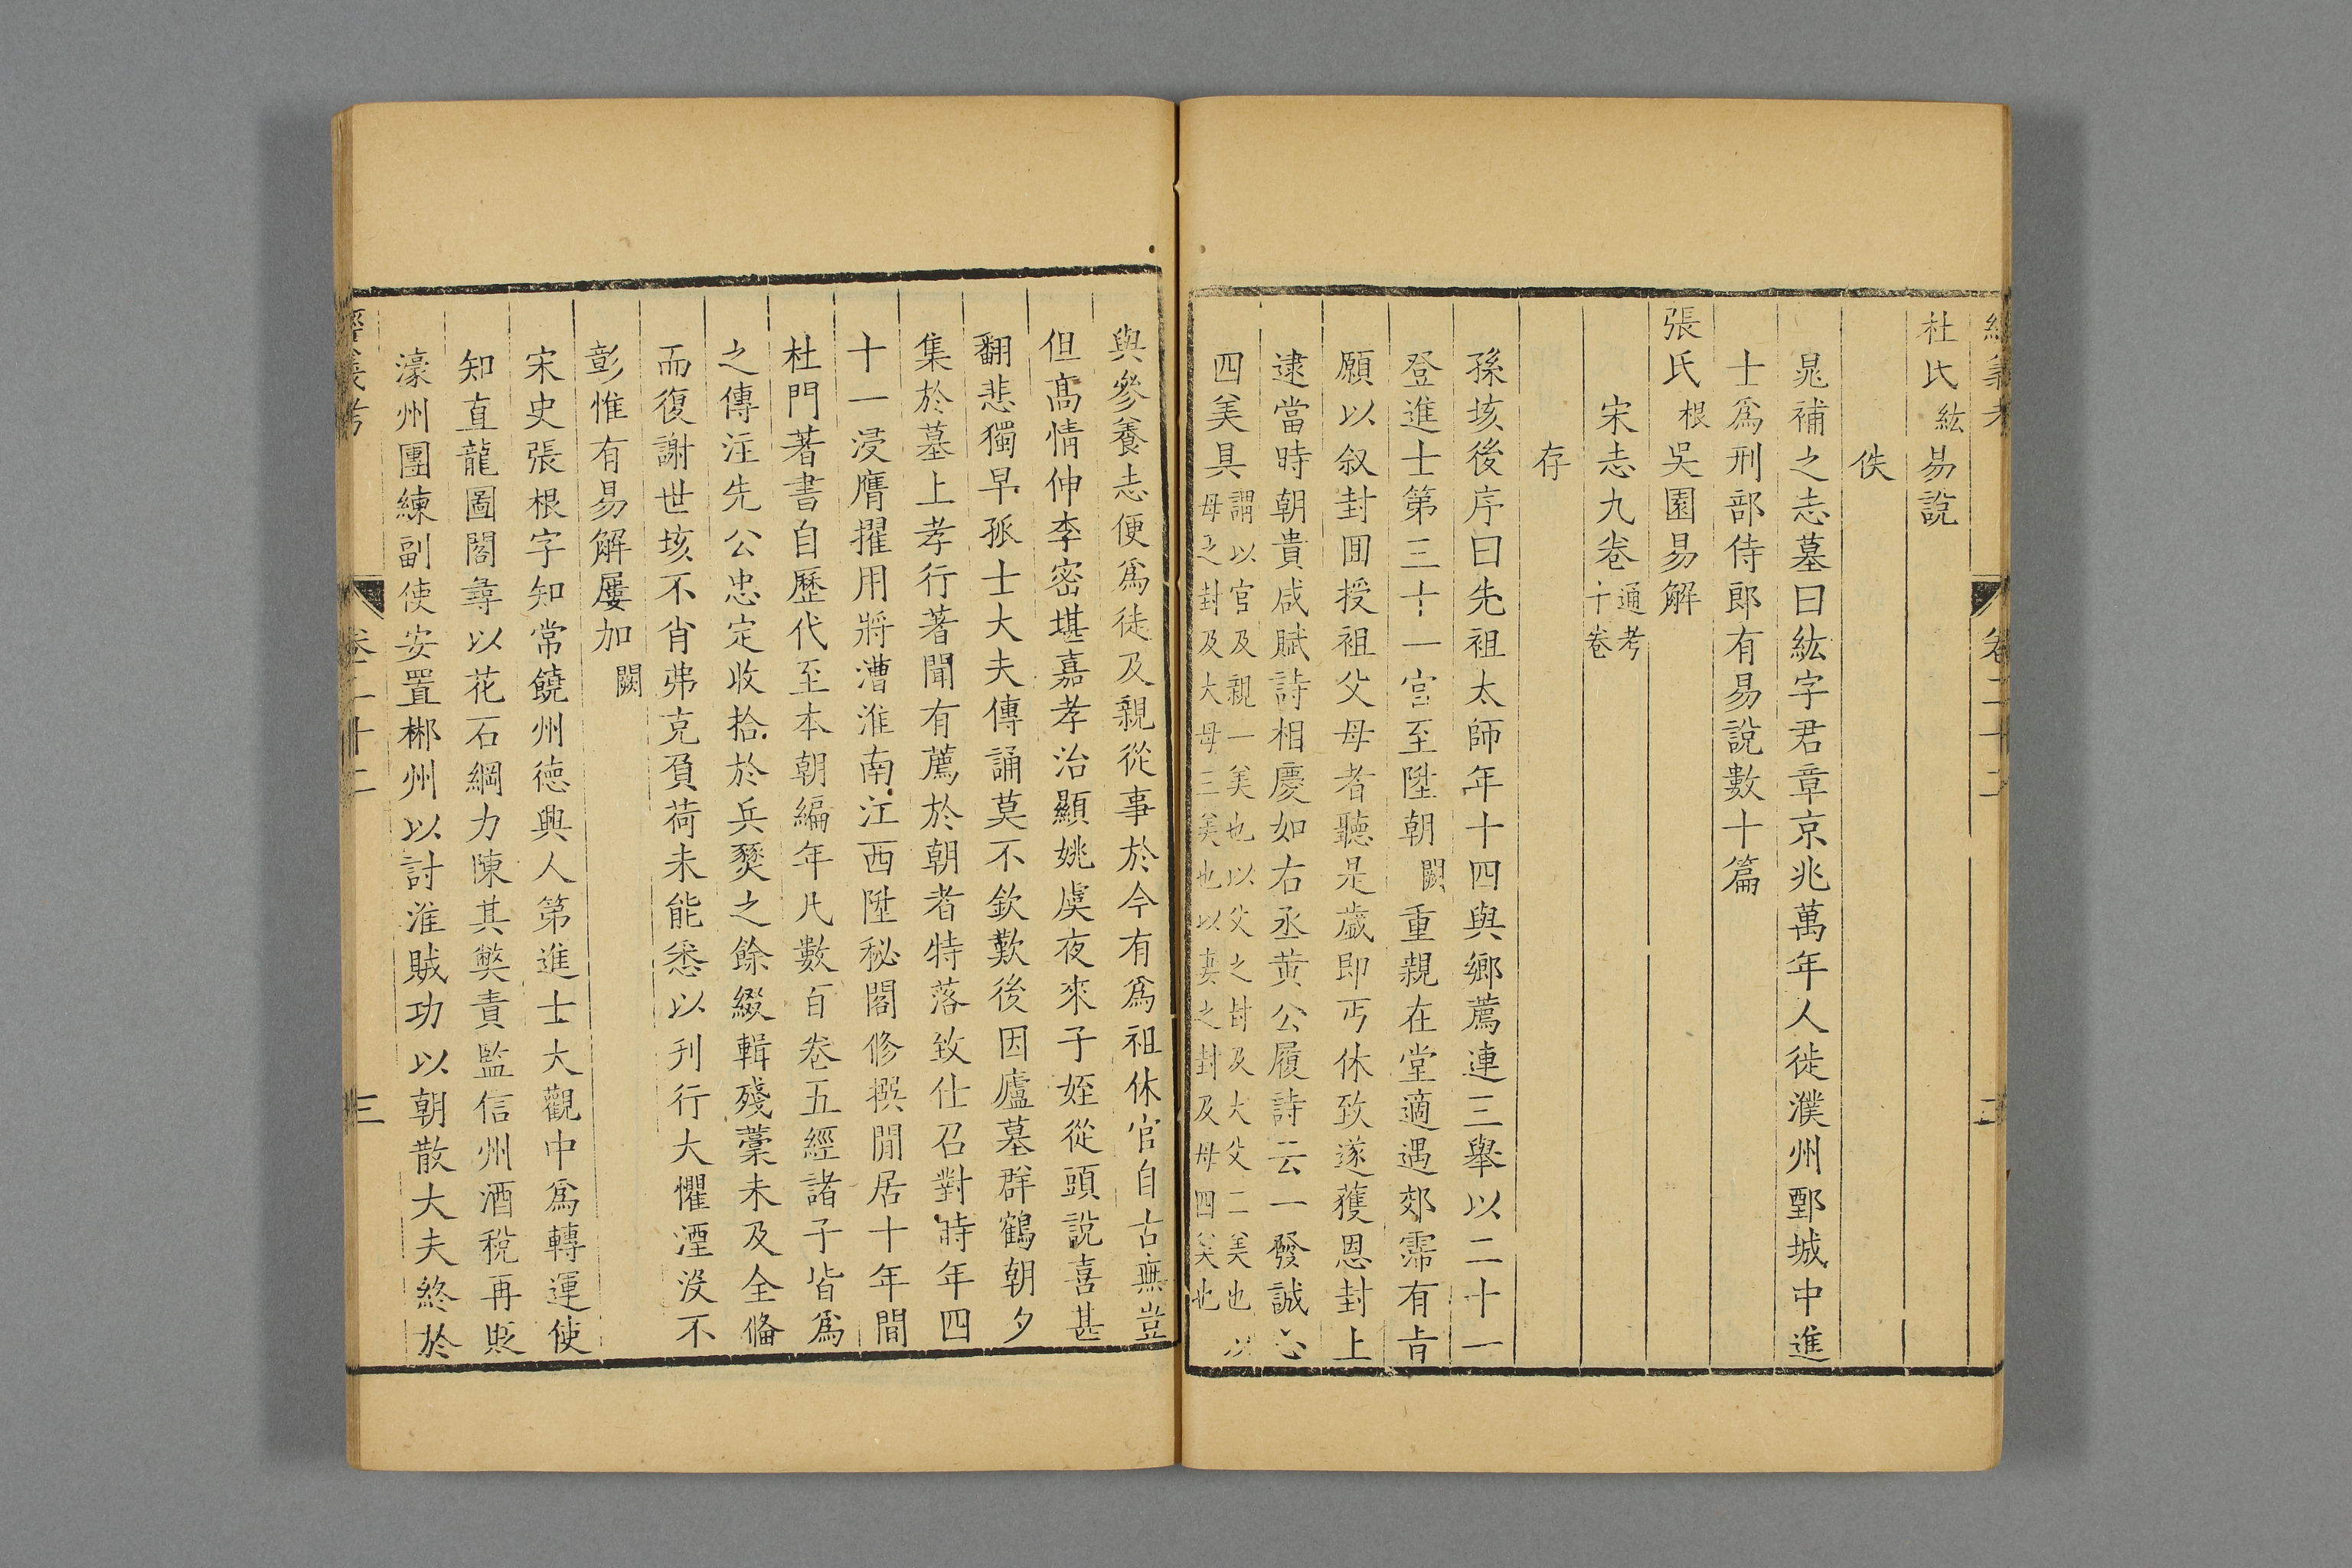 經義考 卷二十二 二
杜氏紘易說
佚
晁補之志墓曰紘字君章京兆萬年人徙濮州鄄城中進
士爲刑部侍郎有易說數十篇
張氏根吳園易解
宋志九卷通考十卷
存
孫垓後序曰先祖太師年十四與鄉薦連三舉以二十一
登進士第三十一官至陞朝闕重親在堂適遇郊霈有旨
願以叙封囬授祖父母者聽是歲即丐休致遂獲恩封上
逮當時朝貴咸賦詩相慶如右丞黄公履詩云一發誠心
四美具謂以官及親一美也以父之封及大父二美也以母之封及大母三美也以妻之封及母四美也
與參養志便爲徒及親從事於今有爲祖休官自古無豈
但髙情伸李密堪嘉孝治顯姚虞夜來子姪從頭說喜甚
翻悲獨早孤士大夫傳誦莫不欽歎後因廬墓群鶴朝夕
集於墓上孝行著聞有薦於朝者特落致仕召對時年四
十一浸膺擢用將漕淮南江西陞秘閣修撰閒居十年間
杜門著書自歷代至本朝編年凡數百卷五經諸子皆爲
之傳注先公忠定收拾於兵燹之餘綴輯殘藁未及全備
而復謝世垓不肖弗克負荷未能悉以刋行大懼湮沒不
彰惟有易解屢加闕
宋史張根字知常饒州德興人第進士大觀中爲轉運使
知直龍圖閣尋以花石綱力陳其獘責監信州酒稅再貶
濠州團練副使安置郴州以討淮賊功以朝散大夫終於
經義考 卷二十二 三